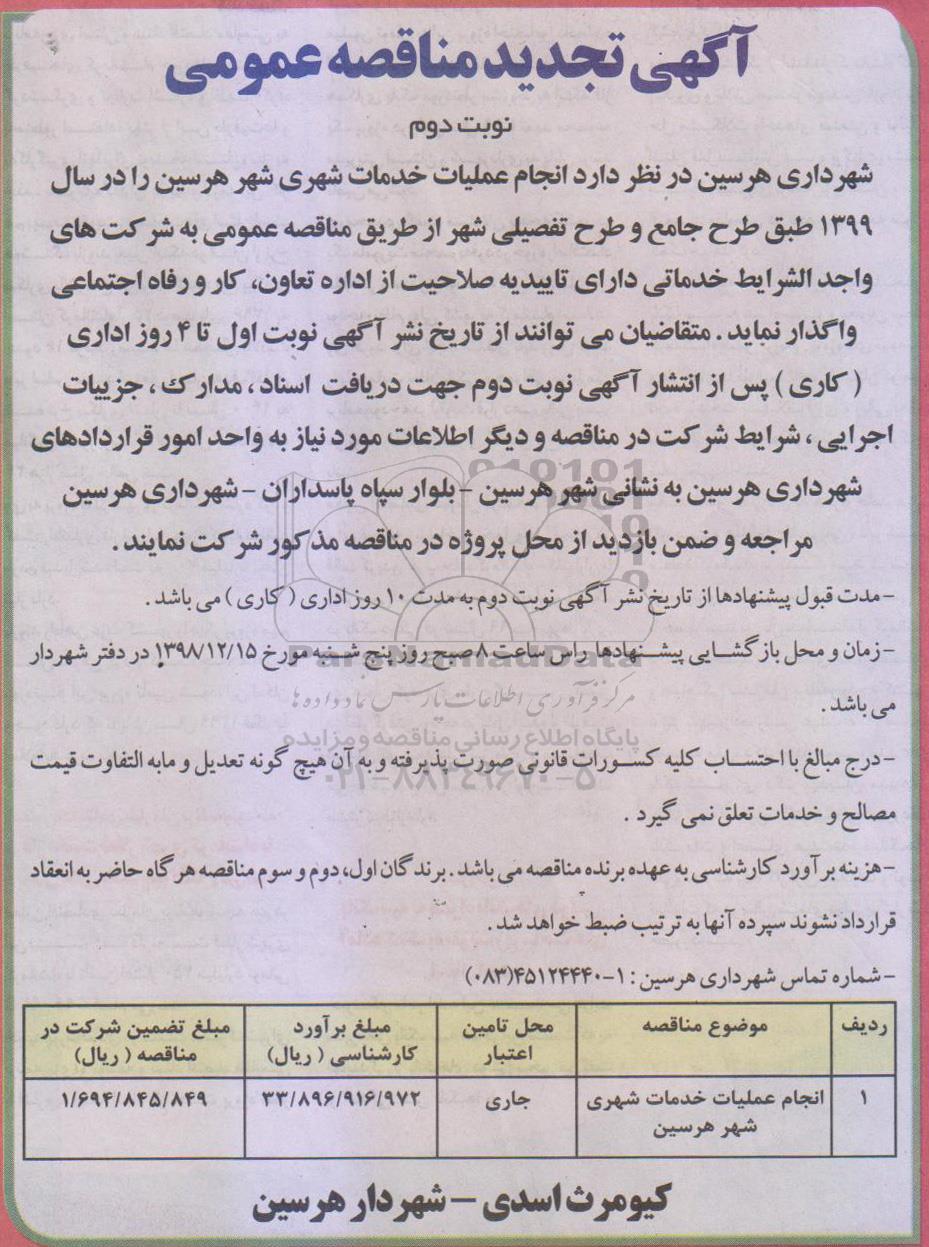 آگهی تجدید مناقصه عمومی
نوبت دوم
شهرداری هرسین در نظر دارد انجام عملیات خدمات شهری شهر هرسین را در سال
۱۳۹۹ طبق طرح جامع و طرح تفصیلی شهر از طریق مناقصه عمومی به شرکت های
واجد الشرایط خدماتی دارای تاییدیه صلاحیت از اداره تعاون، کار و رفاه اجتماعی
واگذار نماید . متقاضیان می توانند از تاریخ نشر آگهی نوبت اول تا ۴ روز اداری
( کاری ) پس از انتشار آگهی نوبت دوم جهت دریافت اسناد ، مدارک ، جزییات
اجرایی ، شرایط شرکت در مناقصه و دیگر اطلاعات مورد نیاز به واحد امور قراردادهای
شهرداری هرسین به نشانی شهر هرسین - بلوار سپاه پاسداران - شهرداری هرسین
مراجعه و ضمن بازدید از محل پروژه در مناقصه مذکور شرکت نمایند .
- مدت قبول پیشنهادها از تاریخ نشر آگهی نوبت دوم به مدت ۱۰ روز اداری ( کاری ) می باشد .
- زمان و محل بازگشایی پیشنهادها راس ساعت ۸ صبح روز پنج شنبه مورخ ۱۳۹۸/۱۲/۱۵ در دفتر شهردار
می باشد .
- درج مبالغ با احتساب کلیه کسورات قانونی صورت پذیرفته و به آن هیچ گونه تعدیل و مابه التفاوت قیمت
مصالح و خدمات تعلق نمی گیرد .
- هزینه برآورد کارشناسی به عهده برنده مناقصه می باشد . برندگان اول، دوم و سوم مناقصه هرگاه حاضر به انعقاد
قرارداد نشوند سپرده آنها به ترتیب ضبط خواهد شد .
- شماره تماس شهرداری هرسین : ۱-۴۵۱۲۴۴۴۰(۰۸۳)
ردیف موضوع مناقصه محل تامین اعتبار مبلغ برآورد کارشناسی ( ریال) مبلغ تضمین شرکت در مناقصه ( ریال)
۱ انجام عملیات خدمات شهری شهر هرسین جاری ۳۳/۸۹۶/۹۱۶/۹۷۲ ۱/۶۹۴/۸۴۵/۸۴۹
کیومرث اسدی – شهردار هرسین
ParsNamadData
مرکز فرآوری اطلاعات پارس نماد داده ها
پایگاه اطلاع رسانی مناقصه و مزایده
۰۲۱-۸۸۳۴۹۶۷۰-۵